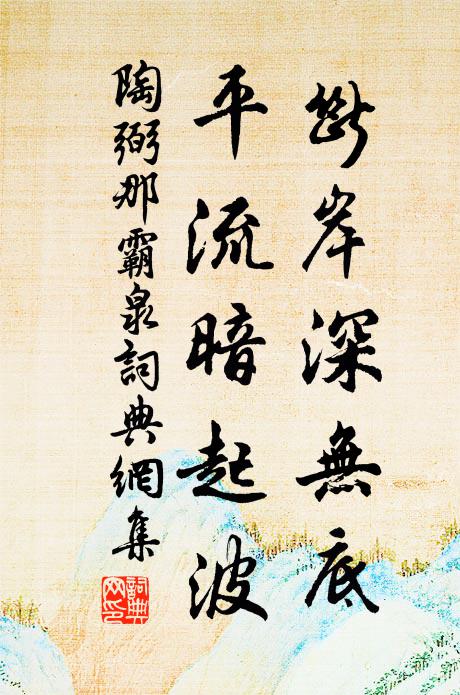 斷岸深無底
平流暗起波
陶弼那霸泉詞典網集
詞典
网